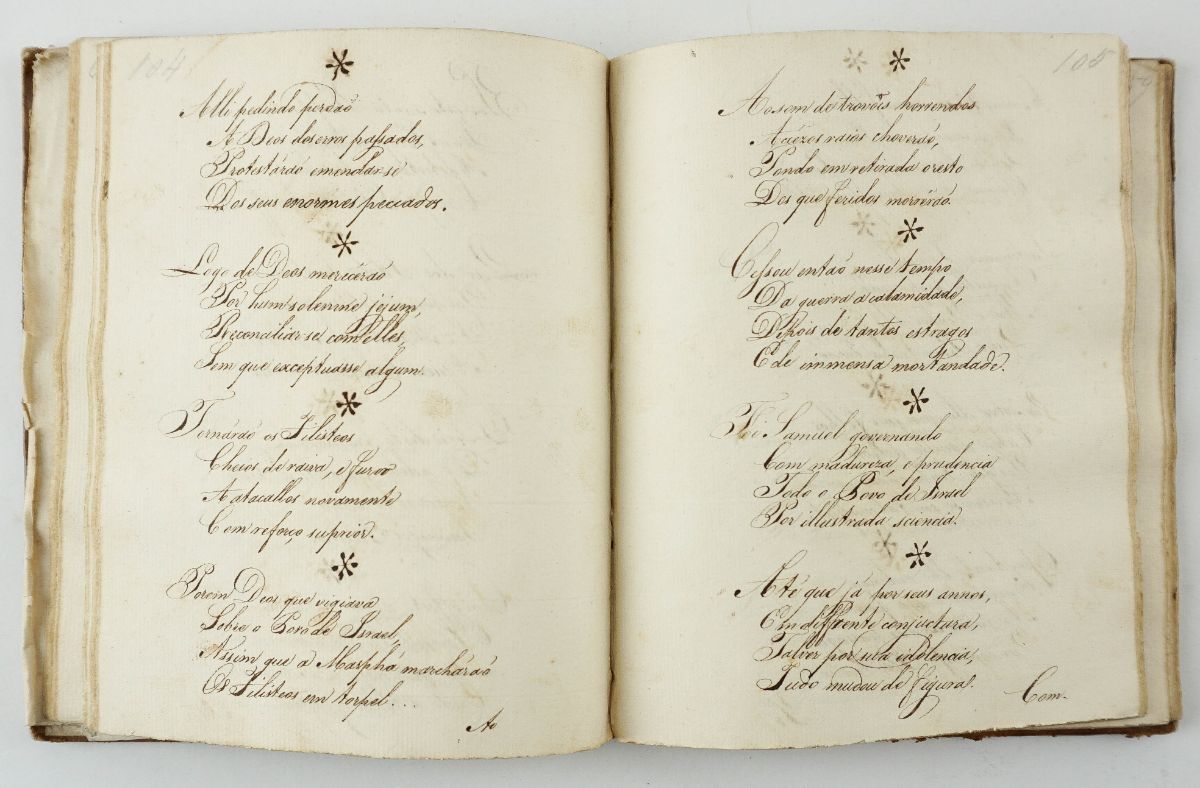 104
Alli pedindo perdaõ
A Deos dos erros passados,
Protestáraõ emendar-se
Dos seus enormes peccados.
Logo de Deos merecêraõ
Por hum solemne jejum,
Reconciliar-se com Elles,
Sem que exceptuasse algum.
Tornáraõ os Filisteos
Cheios de raiva, e furor
A atacallos novamente
Com reforço suprior.
Porem Deos que vigiava
Sobre o Povo de Israel,
Assim que a Masphá marcháraõ
Os Filisteos em torpel...
Ao
105
Ao som de trovois horrendos
Acezos raios choveraõ,
Pondo em retirada o resto
Dos que feridos morrêraõ.
Cessou entaõ nesse tempo
Da guerra a calamidade,
Depois de tantos estragos
E de immensa mortandade.
Foi Samuel governando
Com madureza, e prudencia
Todo o Povo de Israel
Por illustrada sciencia.
Até que já por seus annos,
Em diffrente conjuctura,
Talvez por sua indolencia,
Tudo mudou de figura.
Com.